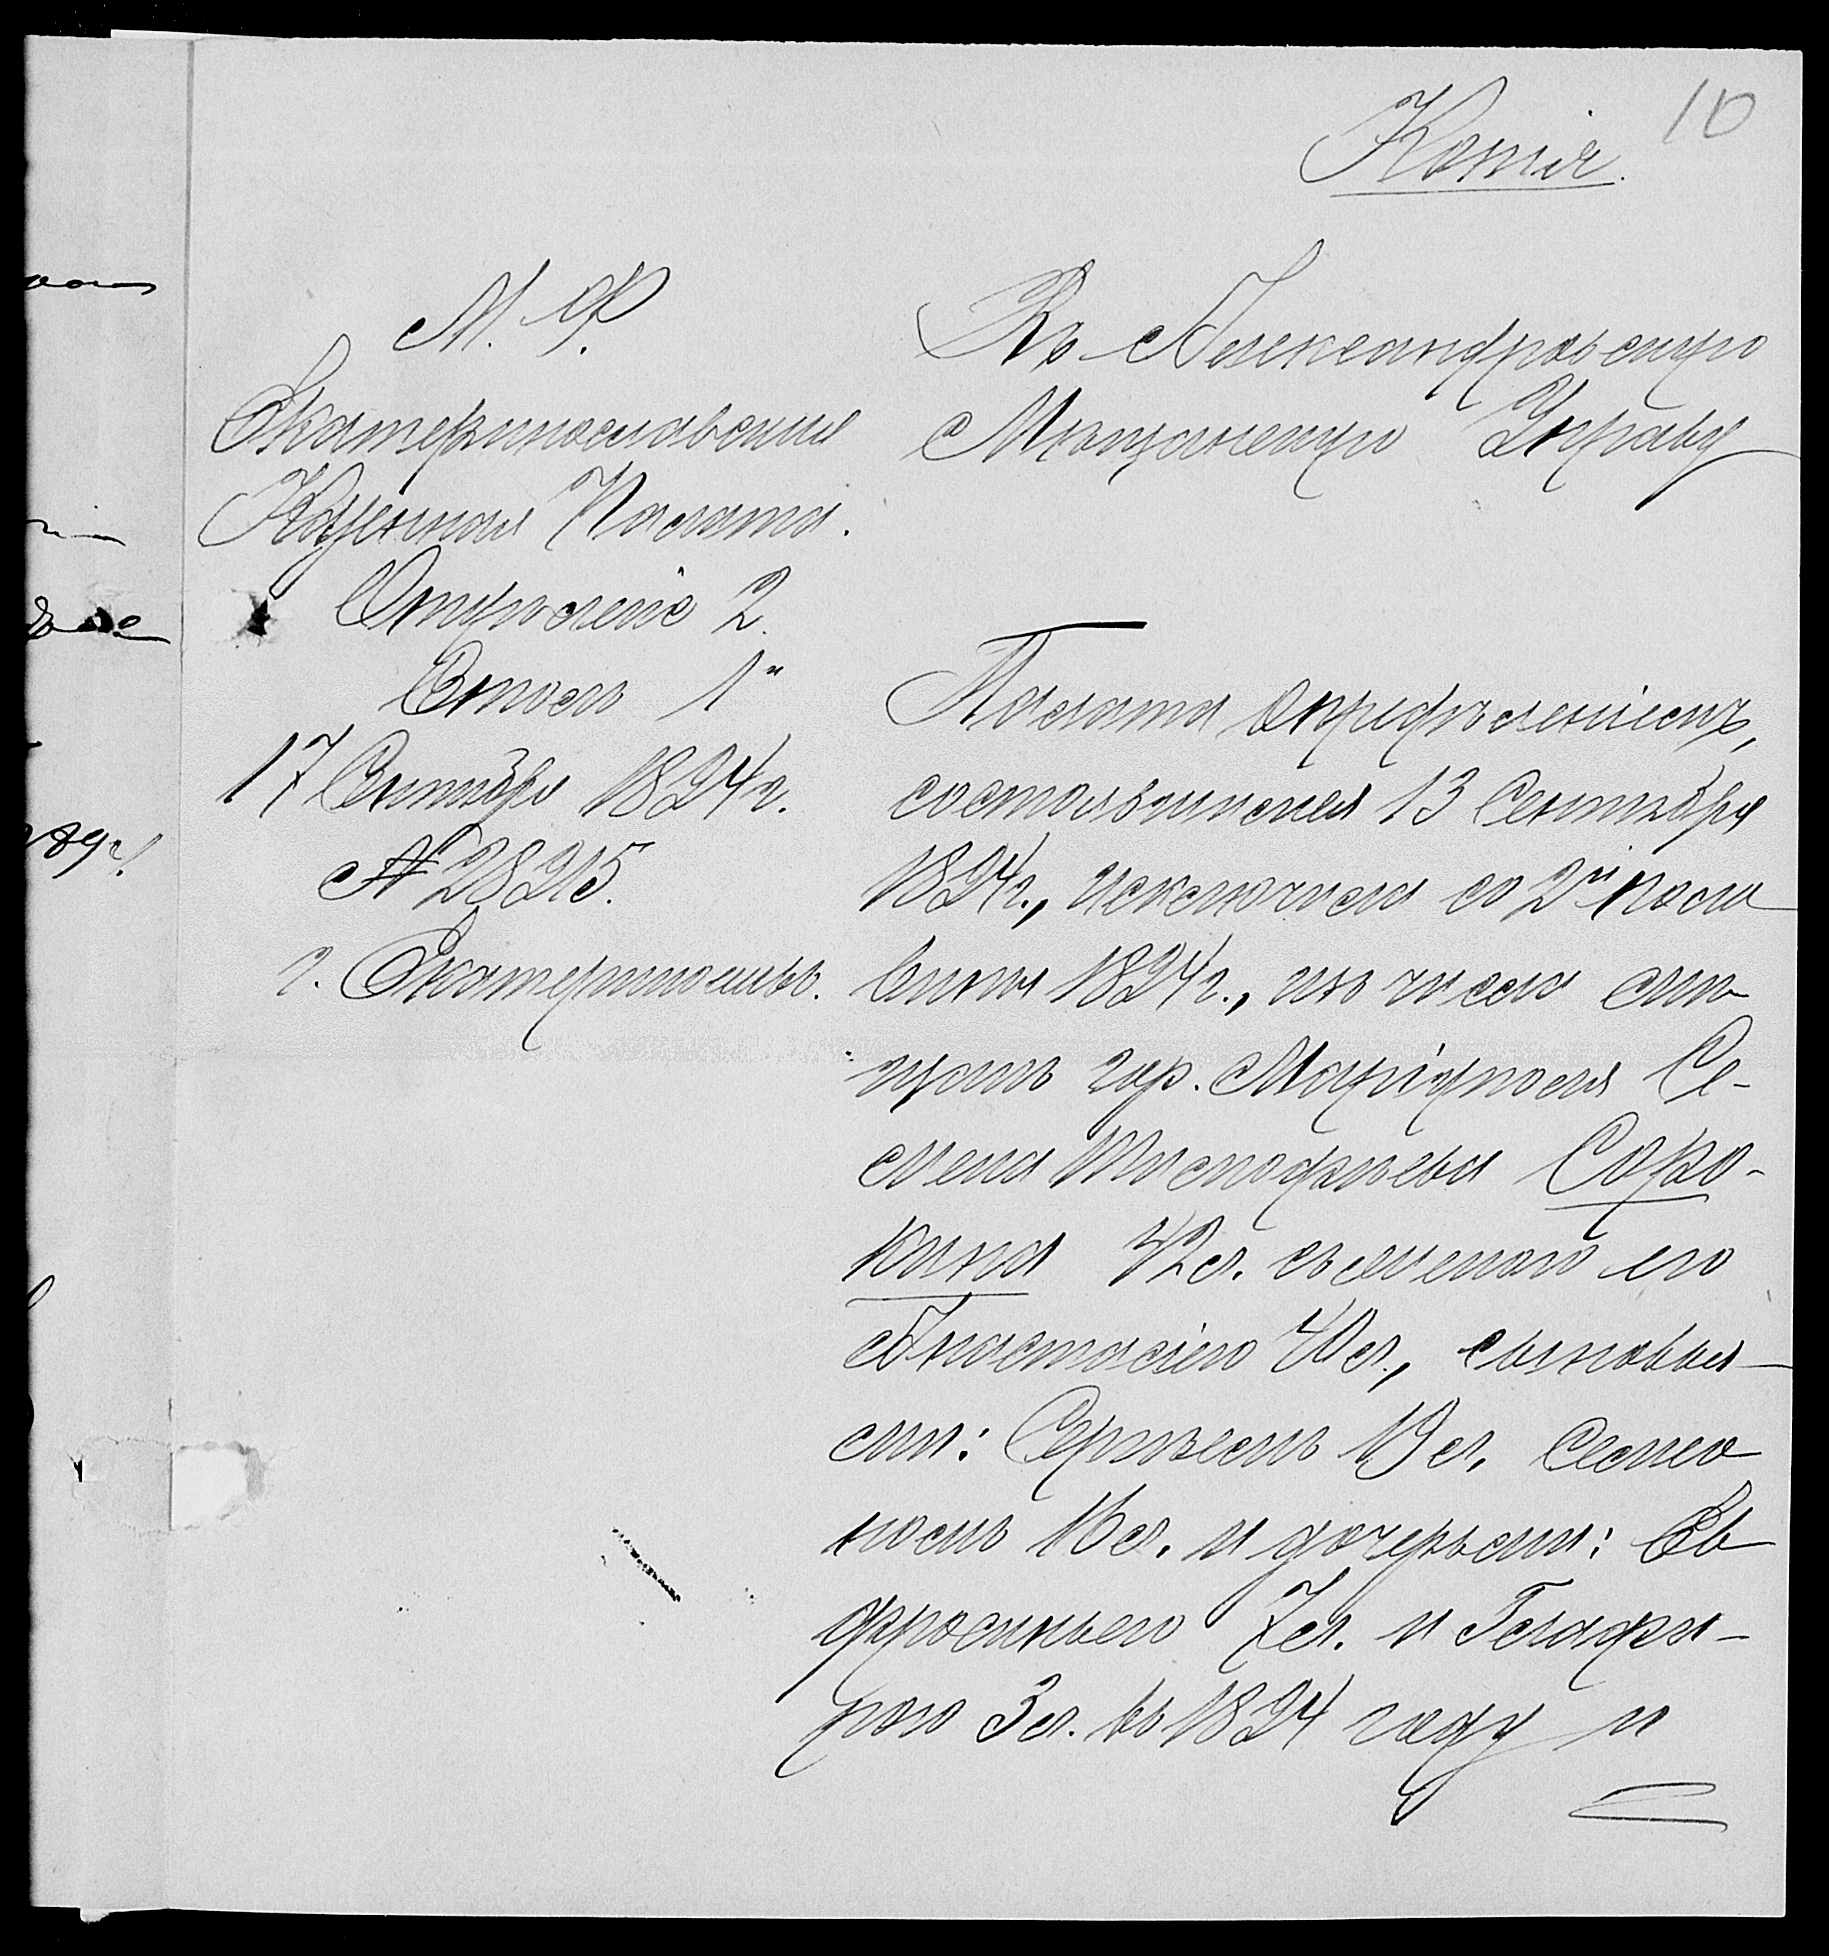 10
Копія.
М. Ф.
Екатеринославская
Казенная Палата.
Отделеніе 2.
Столъ 1й
17 Сентября 1894 г.
№ 28215.
г. Екатеринославъ.
Въ Александровскую
Мѣщанскую Управу
Палата опредѣленіемъ,
состоявшимся 13 Сентября
1894 г., исключила со 2й поло
вины 1894 г., изъ числа мѣ
щанъ гор. Маріуполя Се-
мена Тимофѣева Соро-
кина 42 л. съ женою его
Анастасіею 40 л., сыновья-
ми: Сергѣемъ 19 л., Семео
номъ 16 л. и дочерьми: Ев
фросиньею 7 л. и Глафи-
рою 3 л. въ 1894 году и